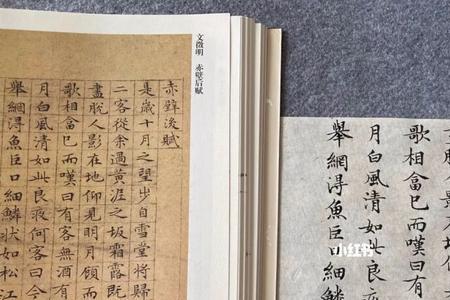 文徵明 赤壁后赋
赤壁後賦
是歲十月之望步自雪堂將歸
二客從余過黃泥之坂霜露既
盡脫人影在地仰見明月顧而
歌相畣已而嘆曰有客無酒有
月白風清如此良夜何客曰今
舉網得魚巨口細鱗狀如松江
人影在地仰
歌相畣已而嘆曰有
月白風清如此良夜
舉網得魚巨口細鱗
小红书